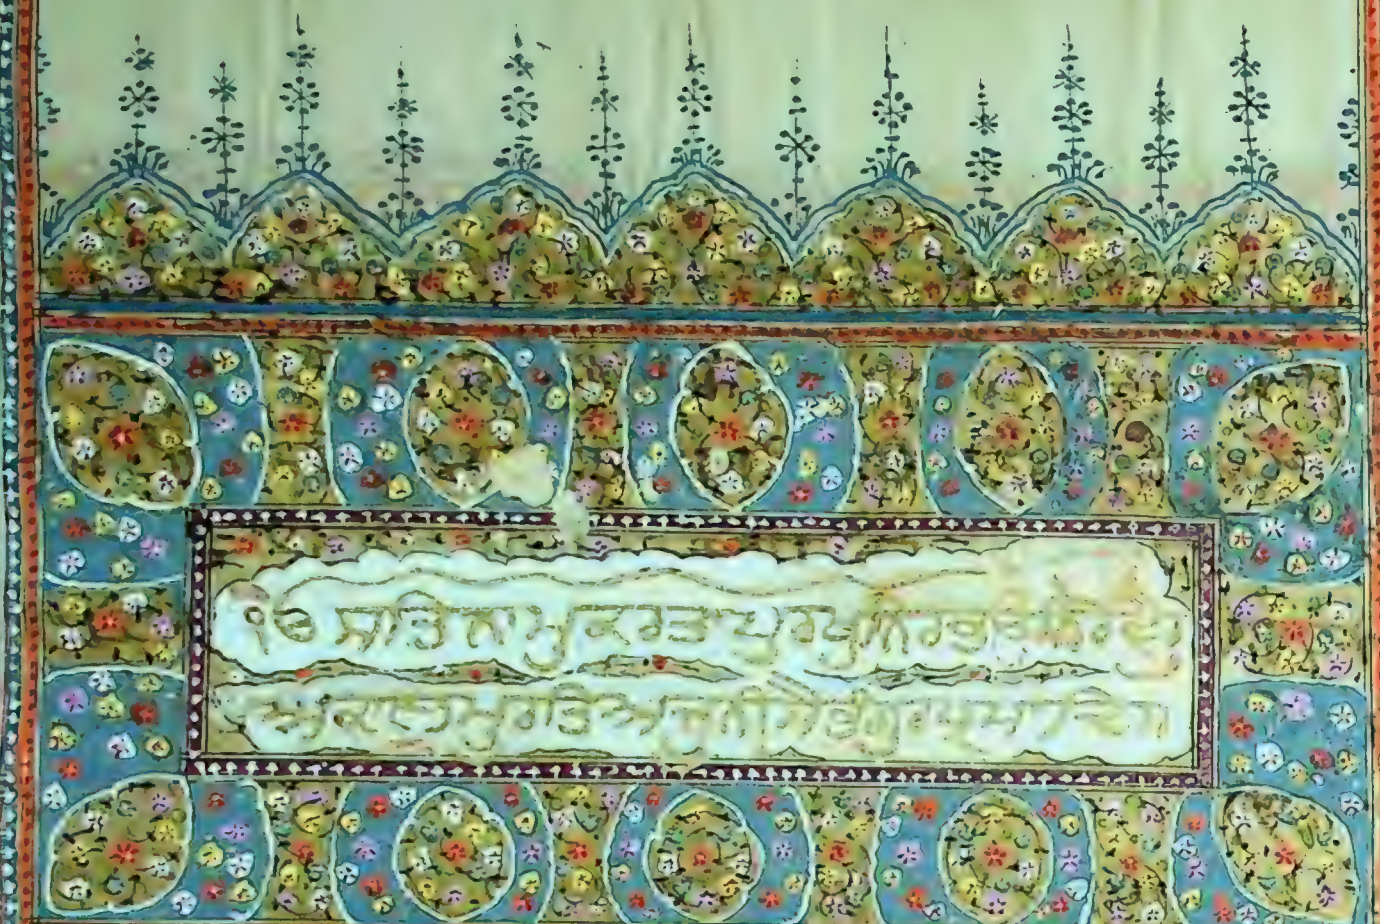 ੧ੳ ਸਤਿਨਾਮੁਕਰਤਾਪੁਰਖੁਨਿਰਭਉਨਿਰਵੈਰੁ
ਅਕਾਲਮੂਰਤਿਅਜੂਨੀਸੈਭੰਗੁਰਪ੍ਰਸਾਦਿ